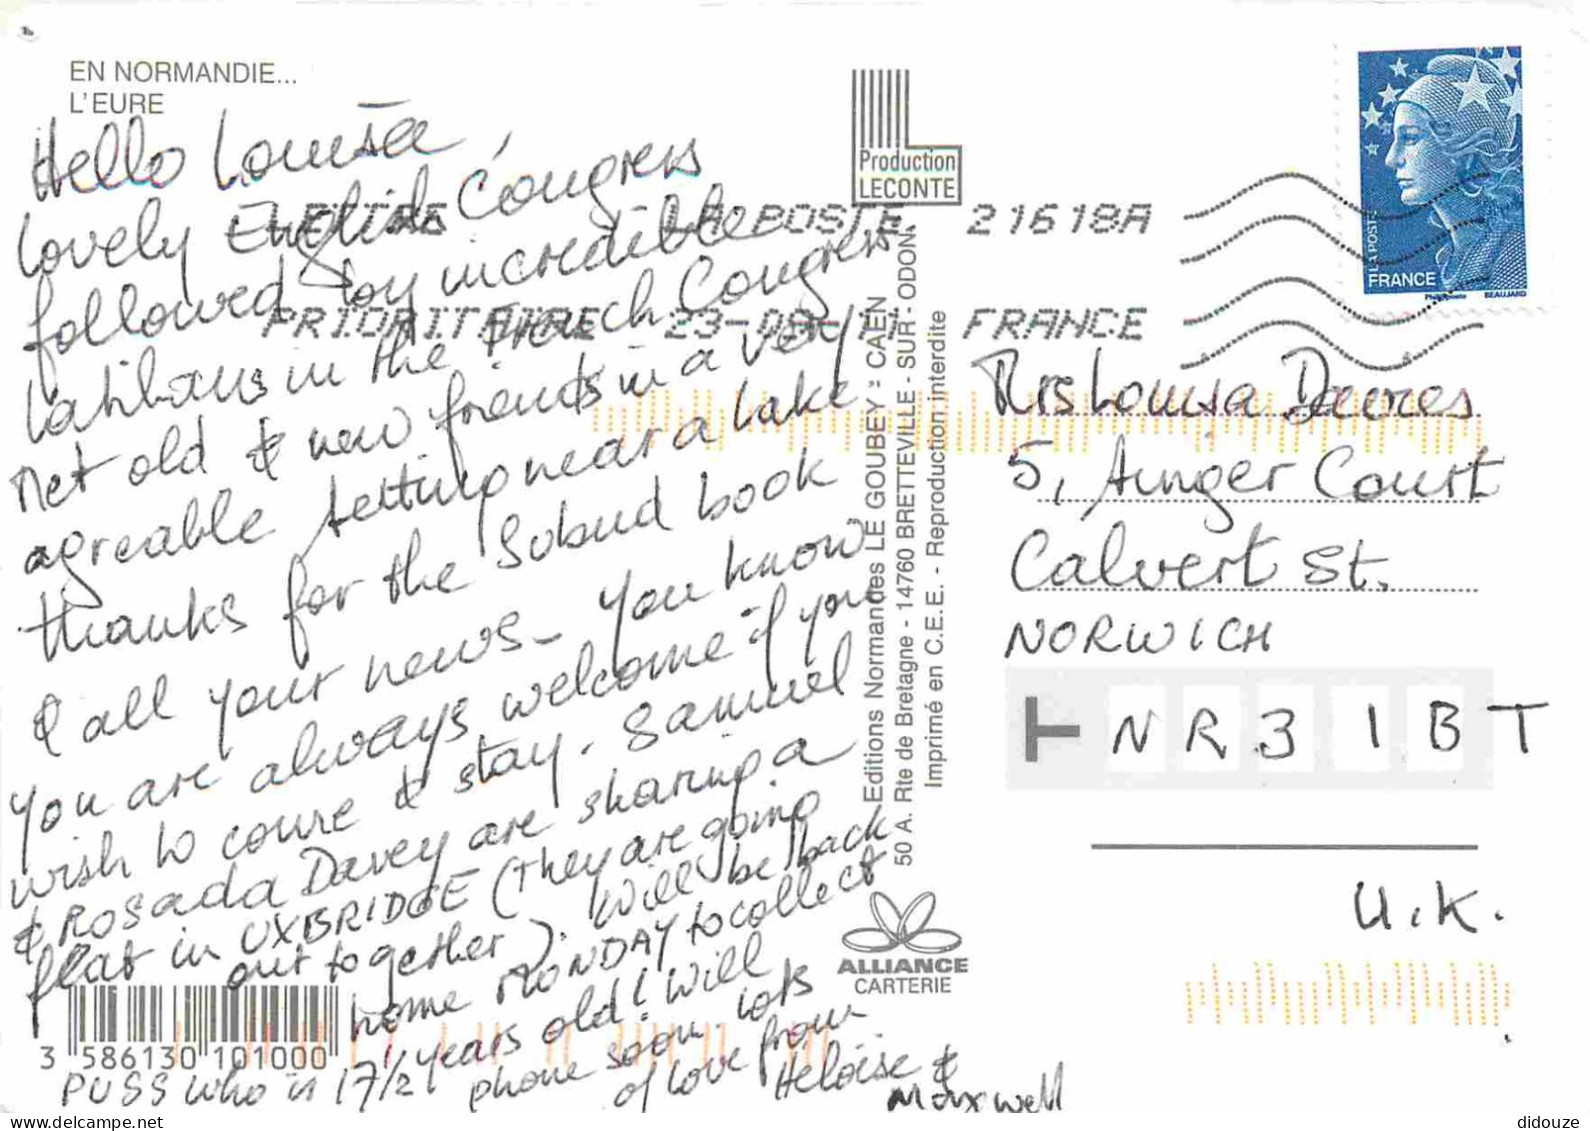 EN NORMANDIE...
L'EURE
Hello Louisa,
Lovely English Congress
followed by incredible
latihans in the French Congress
Met old & new friends in a very
agreable setting near a lake
thanks for the Subud book
& all your news - you know
you are always welcome if you
wish to come & stay. Samuel
& Rosada Davey are sharing a
flat in UXBRIDGE (They are going
out together). Will be back
home MONDAY to collect
PUSS who is 17 1/2 years old! Will
phone soon lots
of love from
Heloïse &
Maxwell
3 586130 101000
Production
LECONTE
Editions Normandes LE GOUBEY - CAEN
50 A. Rte de Bretagne - 14760 BRETTEVILLE - SUR - ODON
Imprimé en C.E.E. - Reproduction interdite
ALLIANCE
CARTERIE
LETTRE LA POSTE 21618A
PRIORITAIRE 23-08-11 FRANCE
LA POSTE
FRANCE
Phil@poste BEAUJARD
Mrs Louisa
5, Aunger Court
Calvert St.
NORWICH
NR3 1BT
U.K.
didouze